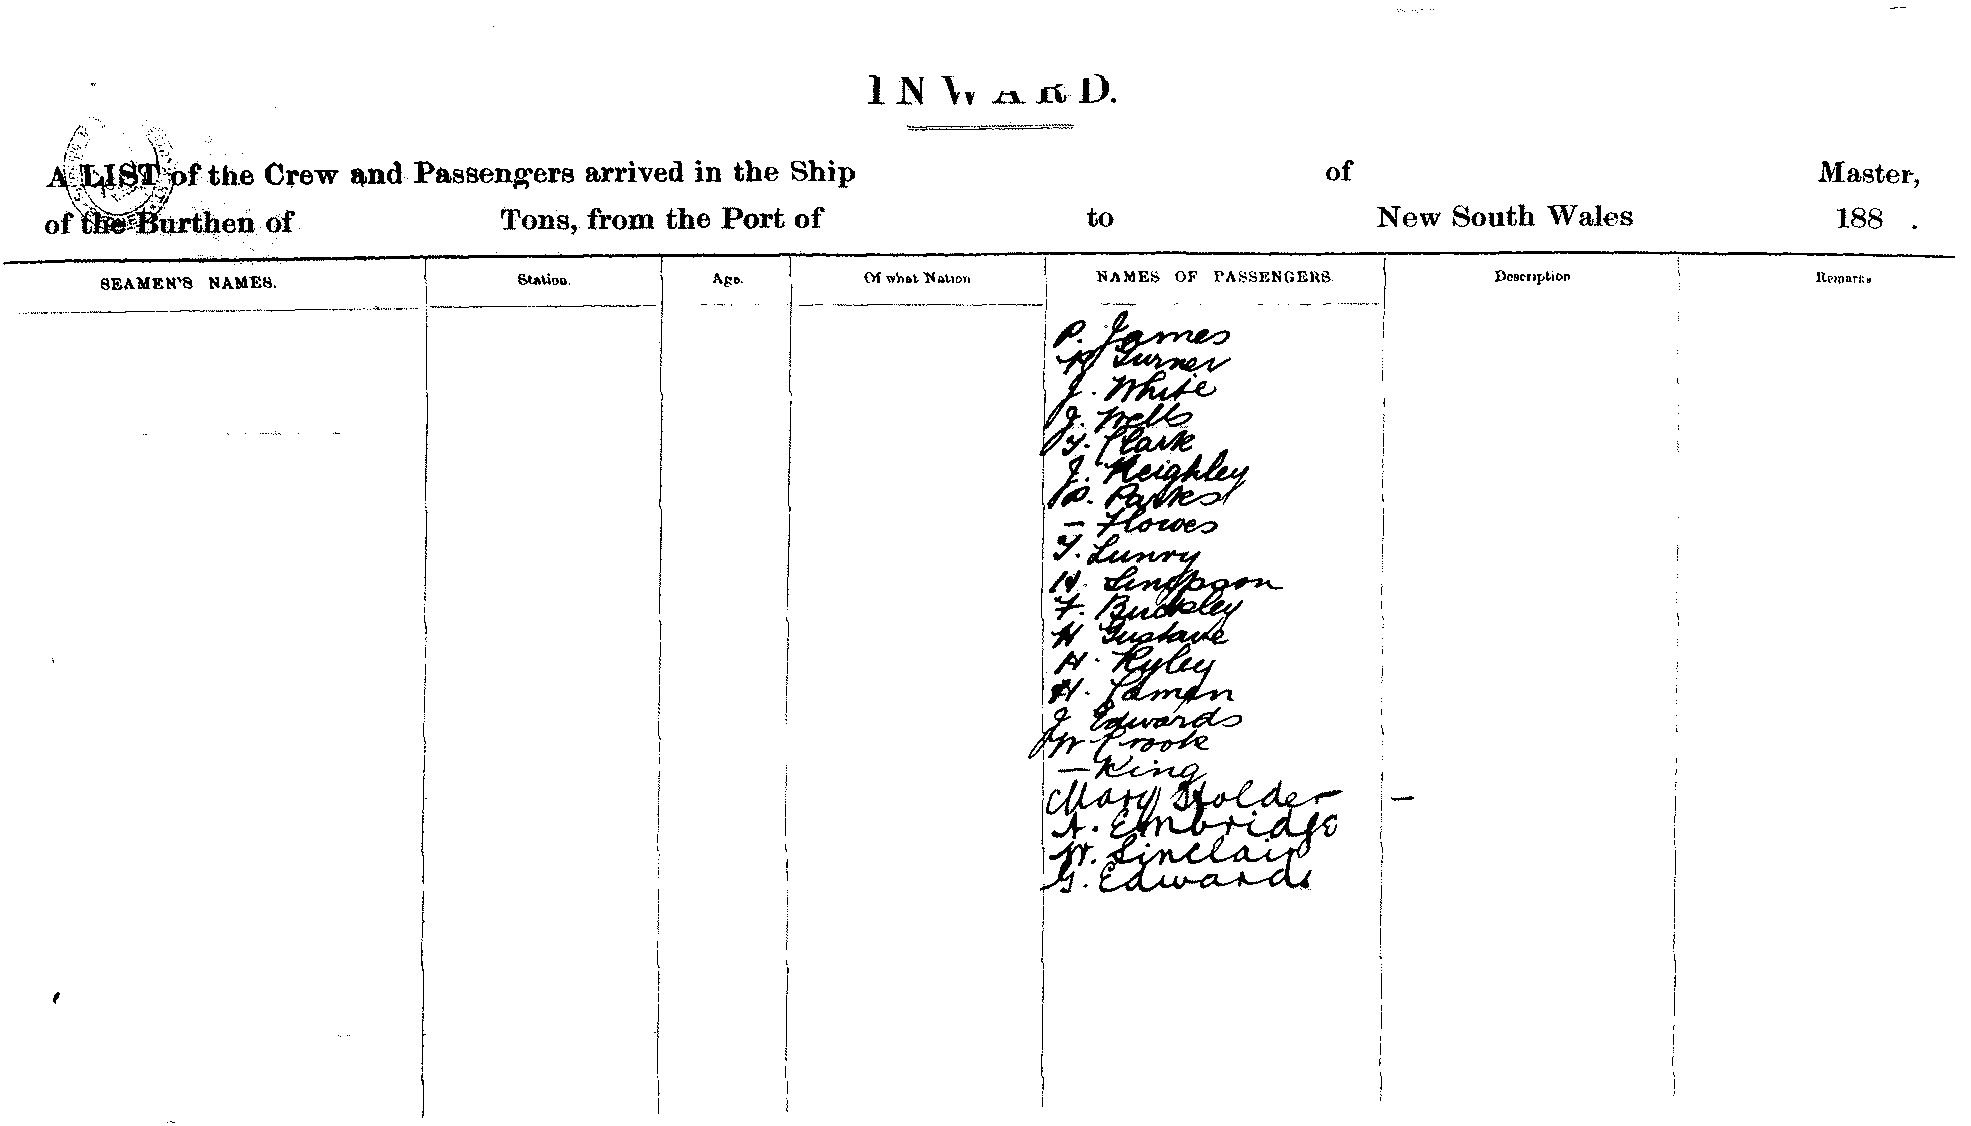 INWARD.
A LIST of the Crew and Passengers arrived in the Ship of Master,
of the Burthen of Tons, from the Port of to New South Wales 188 .
SEAMEN'S NAMES. Station. Age. Of what Nation NAMES OF PASSENGERS. Description Remarks
P. James
Turner
J. White
J. Wells
T. Clark
J. Keighley
P. Parkes
- Howes
T. Lunry
H. Simpson
F. Buckley
H Gustave
H. Ryley
H.
J Edwards
W Crook
- King
Mary Holder -
A. Embridge
W. Sinclair
G. Edwards